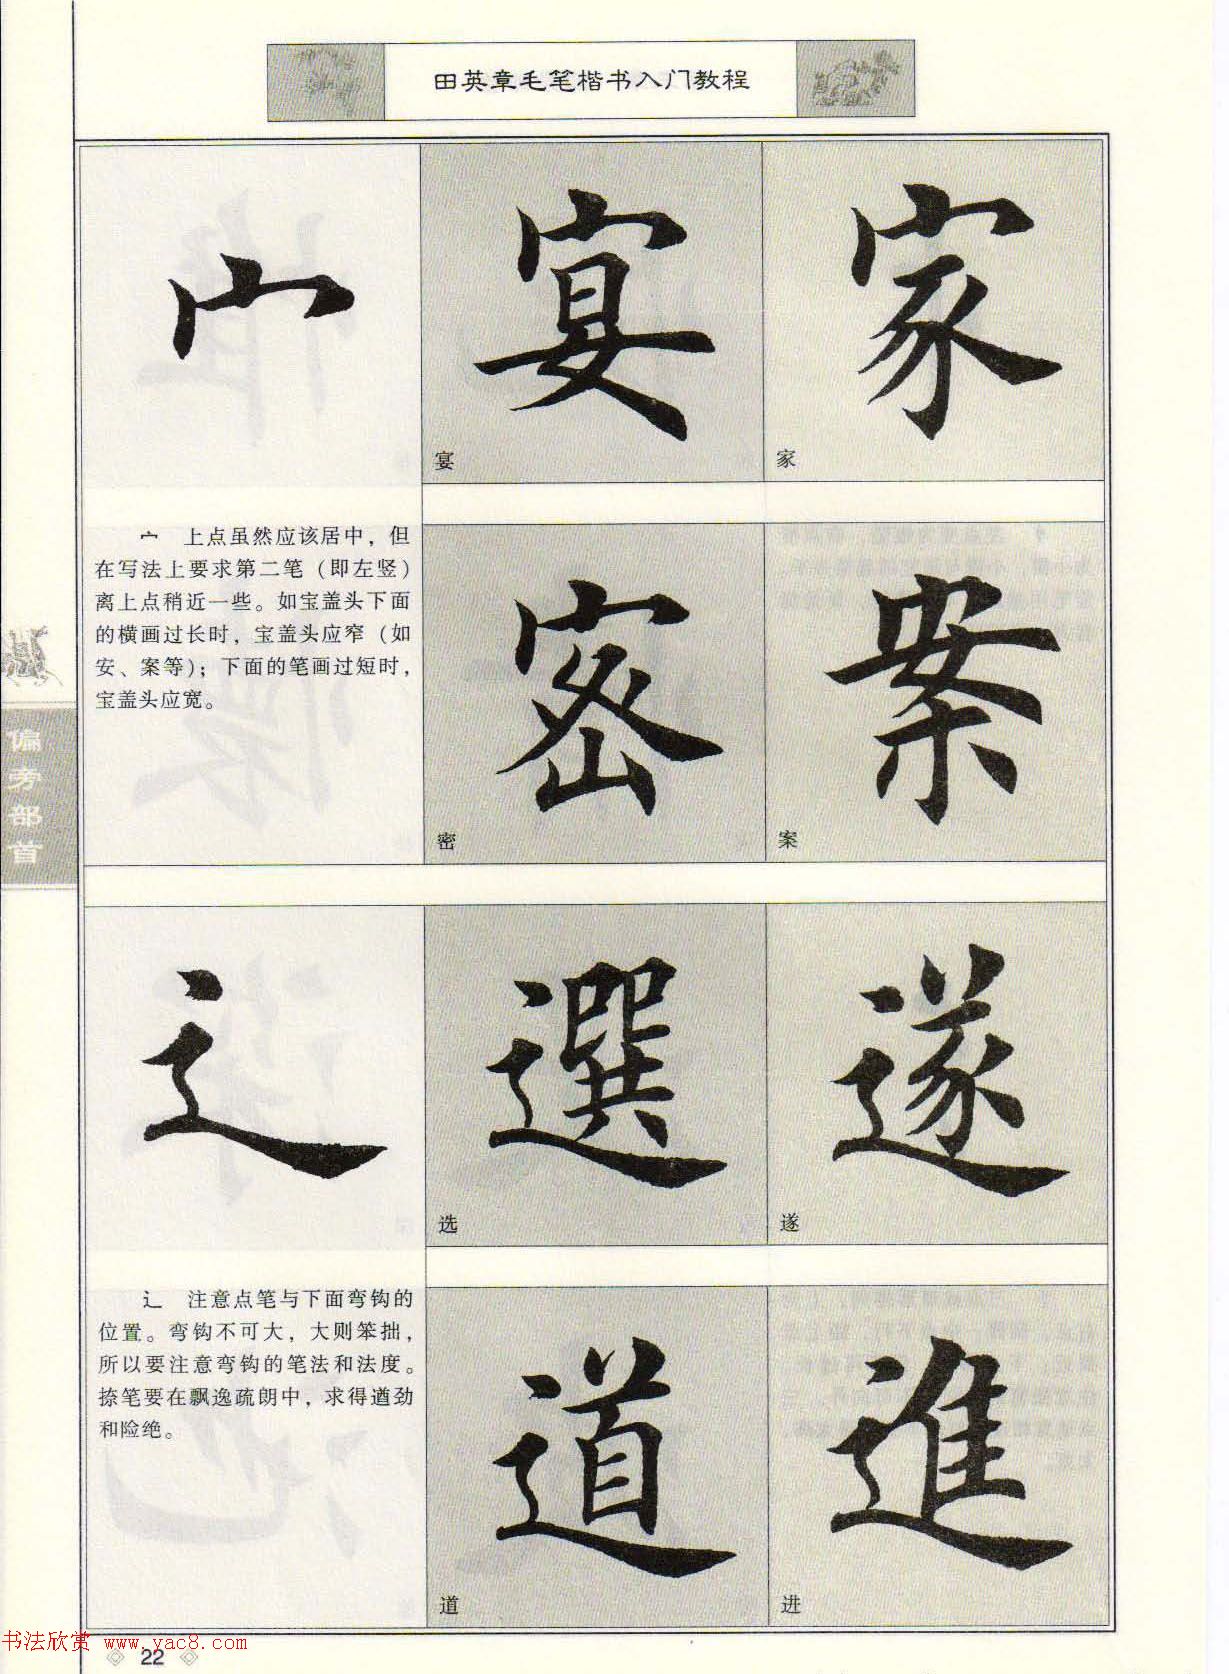 田英章毛笔楷书入门教程
宀 宴 家
宴 家
宀 上点虽然应该居中，但
在写法上要求第二笔（即左竖）
离上点稍近一些。如宝盖头下面
的横画过长时，宝盖头应窄（如
安、案等）；下面的笔画过短时，
宝盖头应宽。
密 案
密 案
偏旁部首
辶 選 遂
选 遂
辶 注意点笔与下面弯钩的
位置。弯钩不可大，大则笨拙，
所以要注意弯钩的笔法和法度。
捺笔要在飘逸疏朗中，求得遒劲
和险绝。
道 進
道 进
书法欣赏 www.yac8.com
22